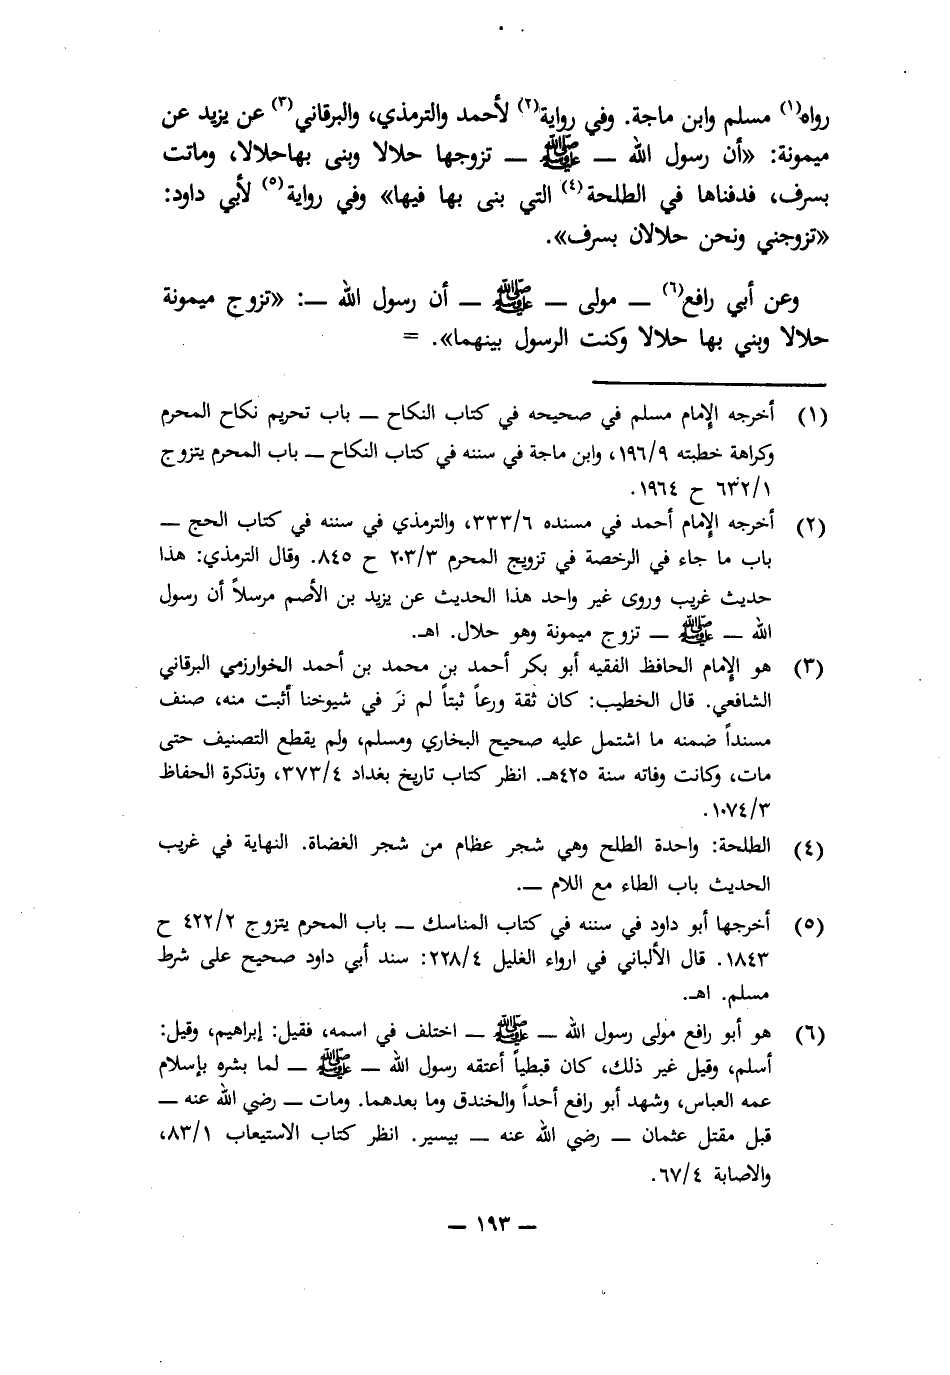 رواه(١) مسلم وابن ماجة. وفي رواية(٢) لأحمد والترمذي، والبرقاني(٣) عن يزيد عن
ميمونة: «أن رسول الله — ﷺ — تزوجها حلالا وبنى بهاحلالا، وماتت
بسرف، فدفناها في الطلحة(٤) التي بنى بها فيها» وفي رواية(٥) لأبي داود:
«تزوجني ونحن حلالان بسرف».
وعن أبي رافع(٦) — مولى — ﷺ — أن رسول الله —: «تزوج ميمونة
حلالا وبني بها حلالا وكنت الرسول بينهما». =
(١) أخرجه الإمام مسلم في صحيحه في كتاب النكاح — باب تحريم نكاح المحرم
وكراهة خطبته ١٩٦/٩، وابن ماجة في سننه في كتاب النكاح — باب المحرم يتزوج
٦٣٢/١ ح ١٩٦٤.
(٢) أخرجه الإمام أحمد في مسنده ٣٣٣/٦، والترمذي في سننه في كتاب الحج —
باب ما جاء في الرخصة في تزويج المحرم ٢٠٣/٣ ح ٨٤٥. وقال الترمذي: هذا
حديث غريب وروى غير واحد هذا الحديث عن يزيد بن الأصم مرسلاً أن رسول
الله — ﷺ — تزوج ميمونة وهو حلال. اهـ.
(٣) هو الإمام الحافظ الفقيه أبو بكر أحمد بن محمد بن أحمد الخوارزمي البرقاني
الشافعي. قال الخطيب: كان ثقة ورعاً ثبتاً لم نرَ في شيوخنا أثبت منه، صنف
مسنداً ضمنه ما اشتمل عليه صحيح البخاري ومسلم، ولم يقطع التصنيف حتى
مات، وكانت وفاته سنة ٤٢٥هـ. انظر كتاب تاريخ بغداد ٣٧٣/٤، وتذكرة الحفاظ
١٠٧٤/٣.
(٤) الطلحة: واحدة الطلح وهي شجر عظام من شجر الغضاة. النهاية في غريب
الحديث باب الطاء مع اللام —.
(٥) أخرجها أبو داود في سننه في كتاب المناسك — باب المحرم يتزوج ٤٢٢/٢ ح
١٨٤٣. قال الألباني في ارواء الغليل ٢٢٨/٤: سند أبي داود صحيح على شرط
مسلم. اهـ.
(٦) هو أبو رافع مولى رسول الله — ﷺ — اختلف في اسمه، فقيل: إبراهيم، وقيل:
أسلم، وقيل غير ذلك، كان قبطياً أعتقه رسول الله — ﷺ — لما بشره بإسلام
عمه العباس، وشهد أبو رافع أحداً والخندق وما بعدهما. ومات — رضي الله عنه —
قبل مقتل عثمان — رضي الله عنه — بيسير. انظر كتاب الاستيعاب ٨٣/١،
والاصابة ٦٧/٤.
— ١٩٣ —